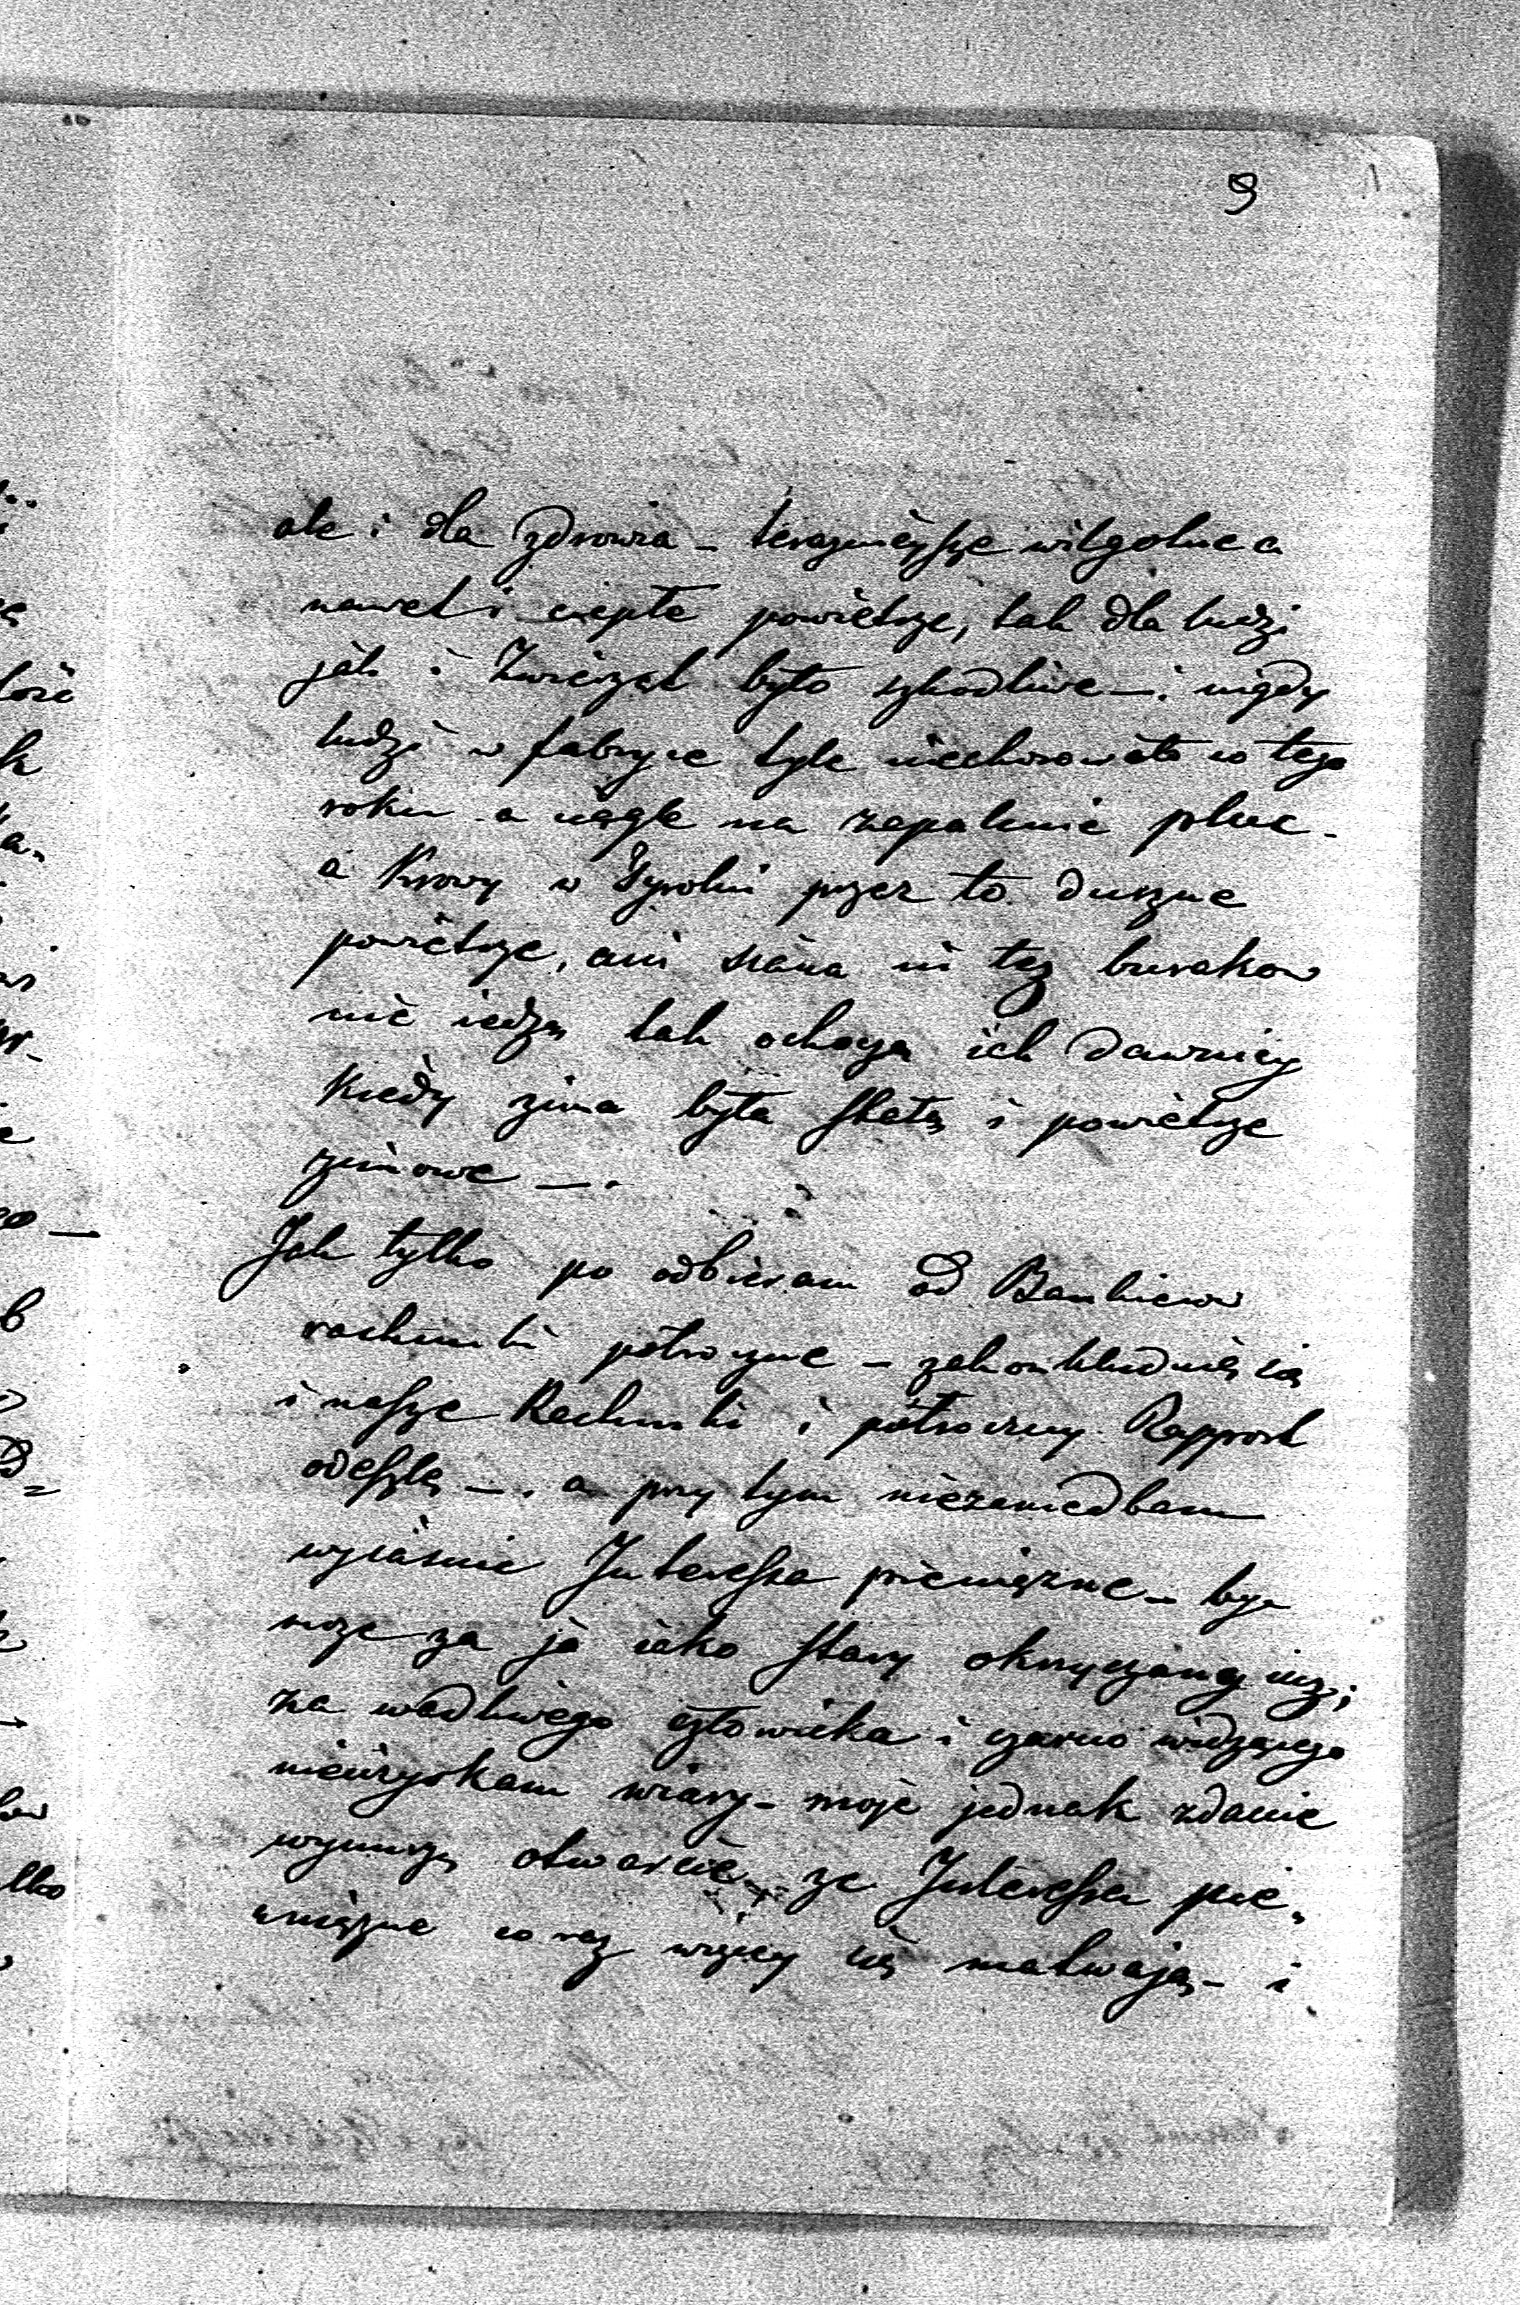 9
ale i dla zdrowia – terazniéysze wilgotne a
nawet i ciepłe powiétrze, tak dla ludzi
jak i Zwierząt było szkodliwe —. nigdy
ludzi w fabryce tyle niechorowało co tego
roku a ciągle na zapalenie płuc –
a Krowy w Tyrolu przez to duszne
powiétrze, ani siana ni téz burakow
nie iedzą tak ochoczo ich dawniéy
Kiedy zima była stałą i powiétrze
zimowe —.
Jak tylko po odbieram od Bankierow
rachunki półroczne – zakonkluduię się
i nasze Rachunki i półroczny Rapport
odeszlę —. a przy tym niezaniedbam
wyiaśnić Interessa pieniężne – być
moze ze ja iako stary okrzyczany iuż,
za wadliwego człowieka i czarno widzącego
nieuzyskam wiary – moje jednak zdanie
wynurzę otwarcie – ze Interessa pie„
„niężne co raz więcéy się matwają – i